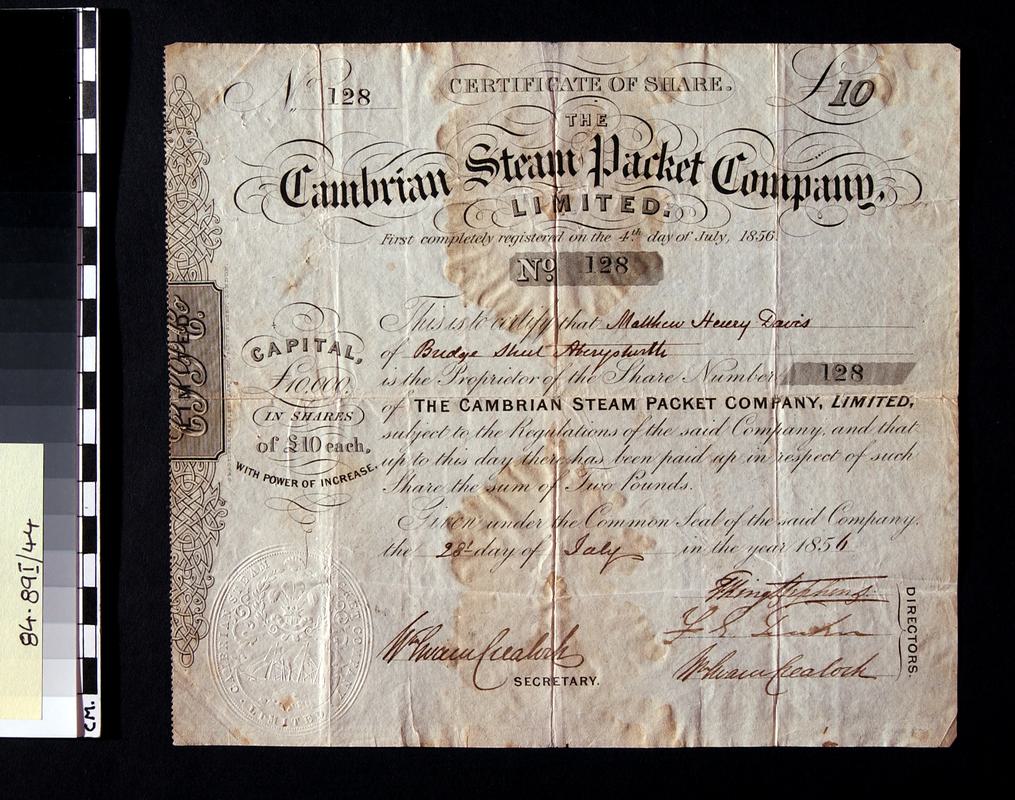 No. 128
CERTIFICATE OF SHARE.
£10
THE
Cambrian Steam Packet Company,
LIMITED;
First completely registered on the 4th day of July, 1856.
No. 128
This is to certify that Matthew Henry Davis
of Bridge Street Aberystwith
is the Proprietor of the Share Number 128
of THE CAMBRIAN STEAM PACKET COMPANY, LIMITED,
subject to the Regulations of the said Company, and that
up to this day there has been paid up in respect of such
Share the sum of Two Pounds.
Given under the Common Seal of the said Company,
the 28t day of July in the year 1856
CAPITAL,
£10,000,
IN SHARES
of £10 each,
WITH POWER OF INCREASE.
DIRECTORS.
SECRETARY.
LIMITED
84.89I/44
CM.